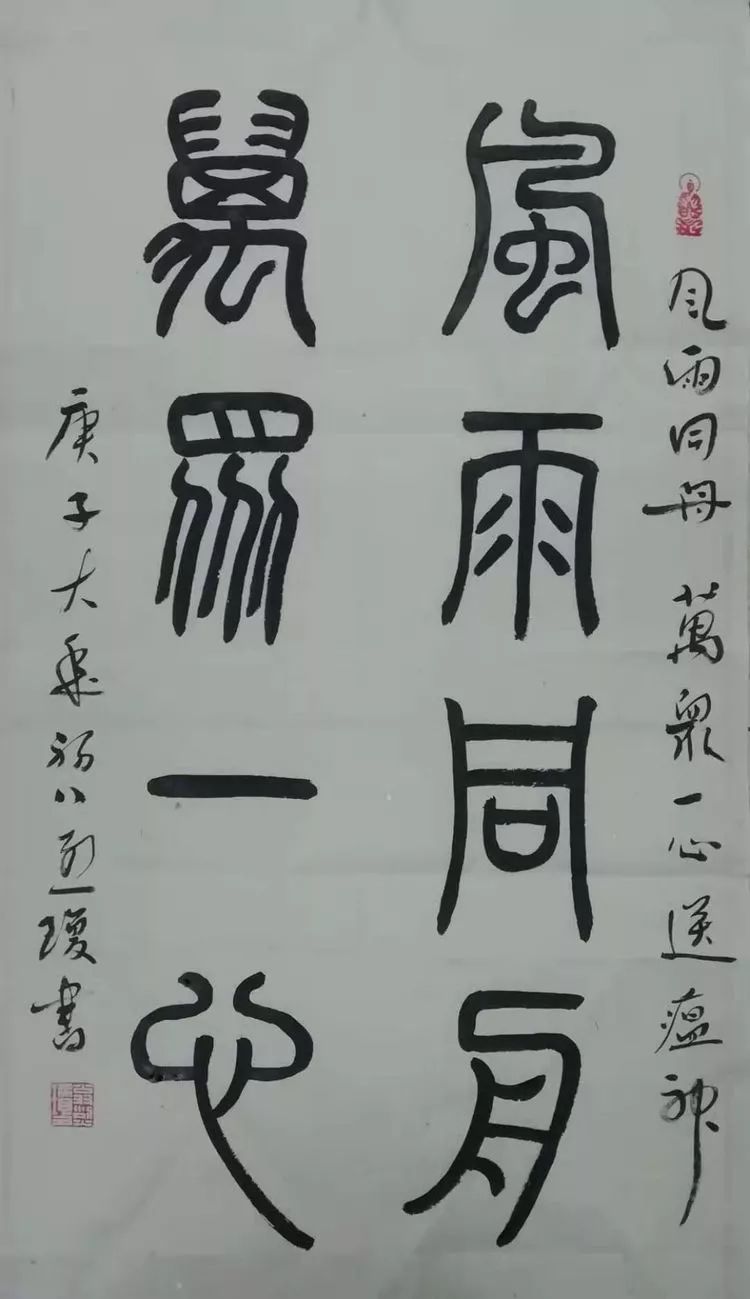 風雨同舟 萬眾一心送瘟神
風雨同舟
萬眾一心
庚子大年初八 瓊書